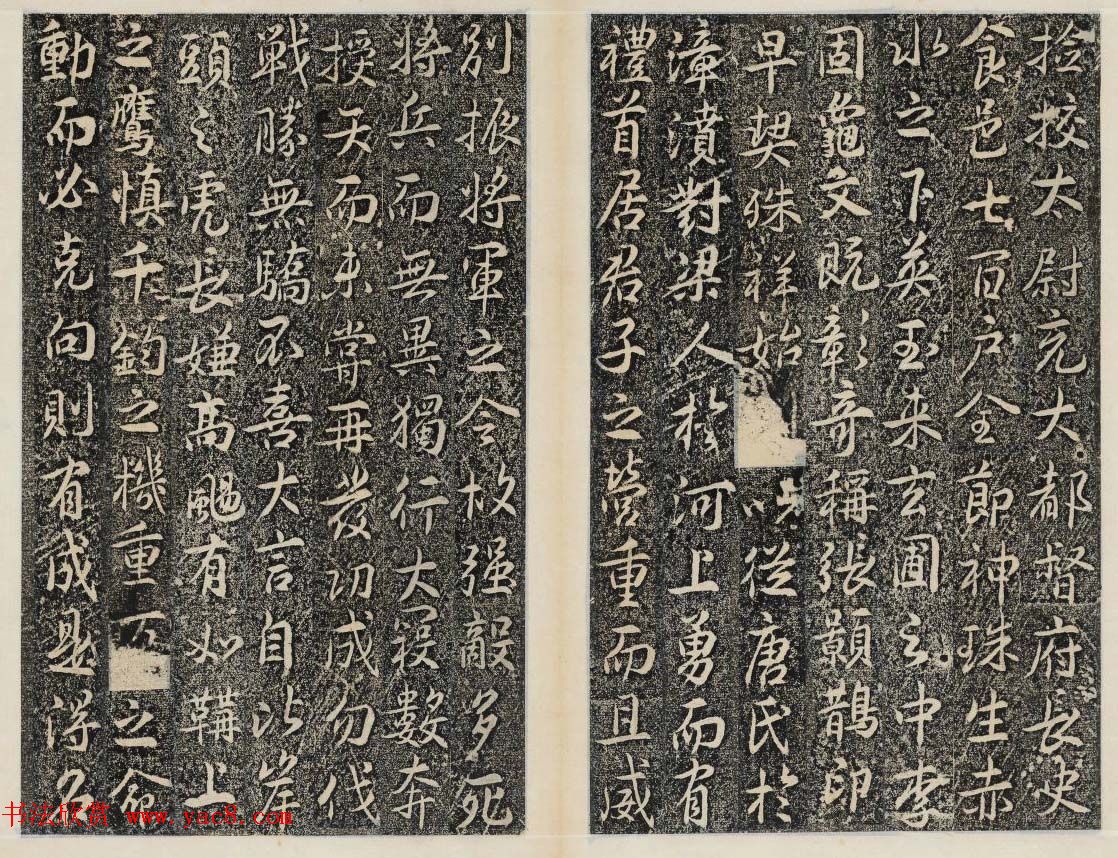 捡挍太尉充大都督府長史
食邑七百户全節神珠生赤
水之下英玉来玄圃之中李
固龜文既彰奇稱張顥鵲印
早契殊祥始以從唐氏於
漳濆對梁人於河上勇而有
禮首居君子之營重而且威
别振將軍之令故强敵多死
将兵而無異獨行大冦數奔
援矢而未甞再發功成勿伐
戰勝無驕不喜大言自比崖
頭之虎長嫌高颺有如鞲上
之鷹慎千鈞之機重万之命
動而必克向則有成是得名
书法欣赏 www.yac8.com